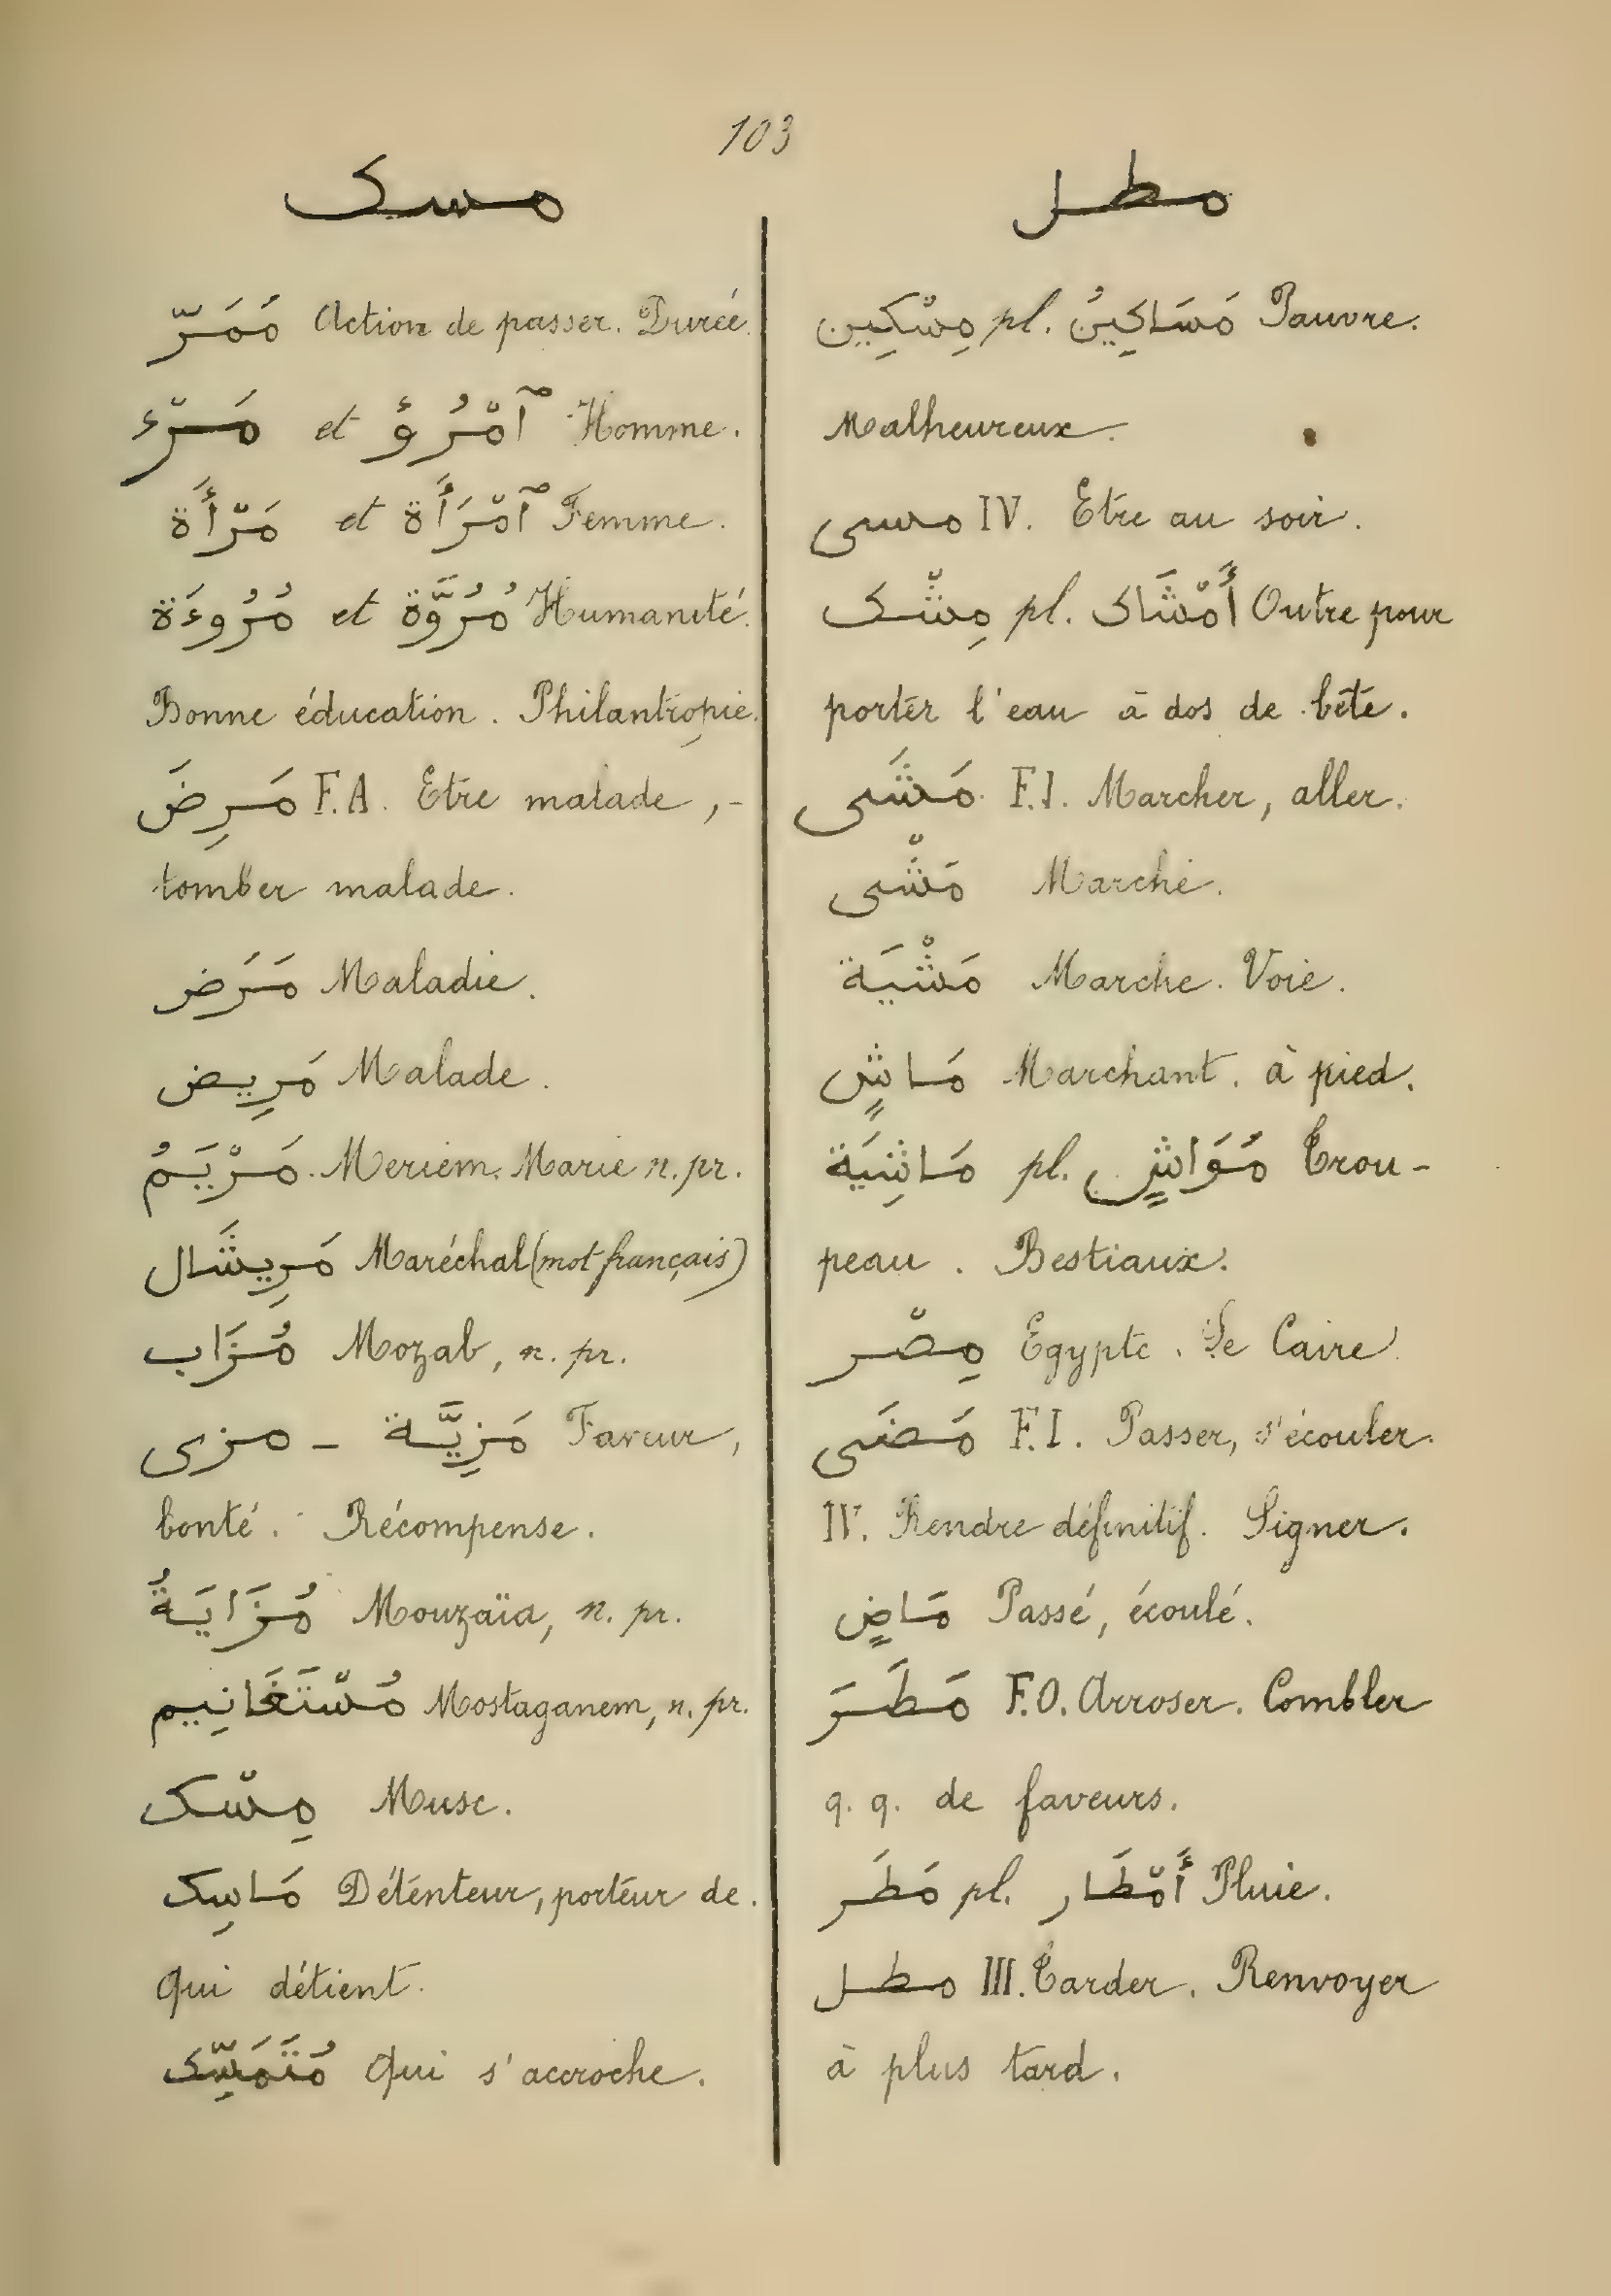 103
مسك
مُمَرّ Action de passer. Durée.
مَرْء et ٱمْرُؤٌ Homme.
مَرْأَة et ٱمْرَأَة Femme.
مُرُوءَة et مُرُوَّة Humanité.
Bonne éducation. Philantropie.
مَرِضَ F.A. Etre malade,-
tomber malade.
مَرَض Maladie.
مَرِيض Malade.
مَرْيَمُ Meriem. Marie n. pr.
مَرِيشَال Maréchal (mot français)
مُزَاب Mozab, n. pr.
مزى – مَزِيَّة Faveur,
bonté. Récompense.
مُزَايَةُ Mouzaïa, n. pr.
مُسْتَغَانِيم Mostaganem, n. pr.
مِسْك Musc.
مَاسِك Détenteur, porteur de.
Qui détient.
مُتَمَسِّك Qui s'accroche.
مطل
مِسْكِين pl. مَسَاكِينُ Pauvre.
Malheureux.
مسى IV. Etre au soir.
مِشْك pl. أَمْشَاك Outre pour
porter l'eau à dos de bête.
مَشَى F.I. Marcher, aller.
مَشْى Marche.
مَشْيَة Marche. Voie.
مَاشٍ Marchant. à pied.
مَاشِيَة pl. مُوَاشٍ Trou-
peau. Bestiaux.
مِصْر Egypte. Le Caire
مَضَى F.I. Passer, s'écouler.
IV. Rendre définitif. Signer.
مَاضٍ Passé, écoulé.
مَطَرَ F.O. Arroser. Combler
q. q. de faveurs.
مَطَر pl. أَمْطَار Pluie.
مطل III. Tarder. Renvoyer
à plus tard.